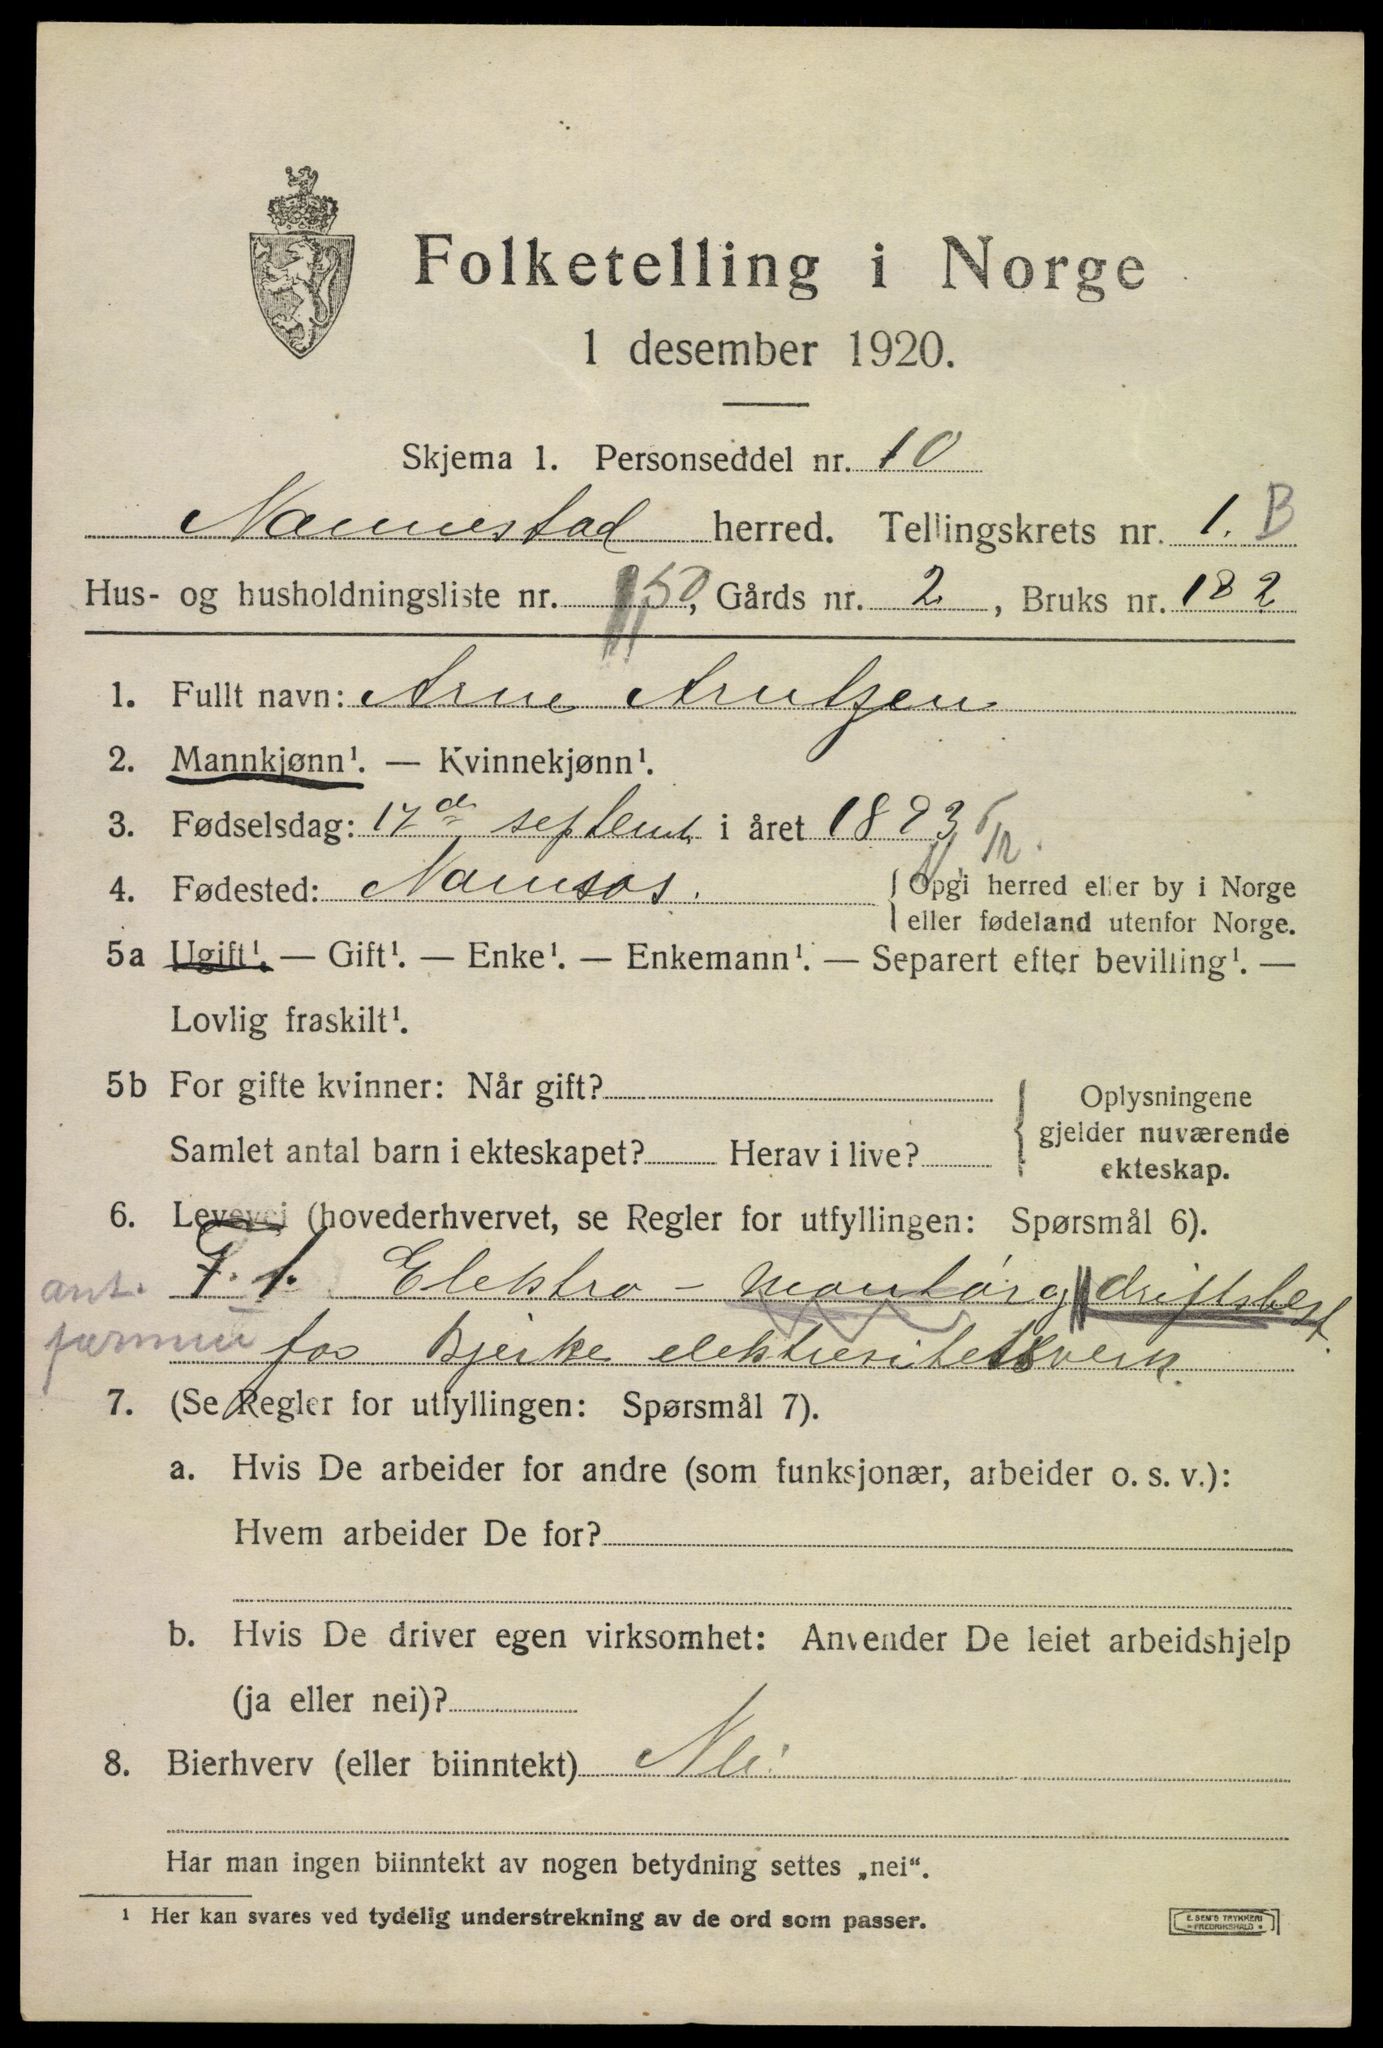 Folketelling i Norge
1 desember 1920.
Skjema 1. Personseddel nr. 10
Nannestad herred. Tellingskrets nr. 1. B
Hus- og husholdningsliste nr. 150, Gårds nr. 2, Bruks nr. 182
1. Fullt navn: Arne Arntzen
2. Mannkjønn¹. — Kvinnekjønn¹.
3. Fødselsdag: 17de septemb. i året 1893
4. Fødested: Namsos. Opgi herred eller by i Norge
eller fødeland utenfor Norge.
5a Ugift¹. — Gift¹. — Enke¹. — Enkemann¹. — Separert efter bevilling¹. —
Lovlig fraskilt¹.
5b For gifte kvinner: Når gift? Oplysningene
gjelder nuværende
Samlet antal barn i ekteskapet? Herav i live?
ekteskap.
6. Levevei (hovederhvervet, se Regler for utfyllingen: Spørsmål 6).
Elektro - montør og driftsbest.
for Bjerke elektresitetsverk.
7. (Se Regler for utfyllingen: Spørsmål 7).
a. Hvis De arbeider for andre (som funksjonær, arbeider o. s. v.):
Hvem arbeider De for?
b. Hvis De driver egen virksomhet: Anvender De leiet arbeidshjelp
(ja eller nei)?
8. Bierhverv (eller biinntekt) Nei
Har man ingen biinntekt av nogen betydning settes „nei“.
¹ Her kan svares ved tydelig understrekning av de ord som passer.
E. SEM'S TRYKKERI
FREDRIKSHALD